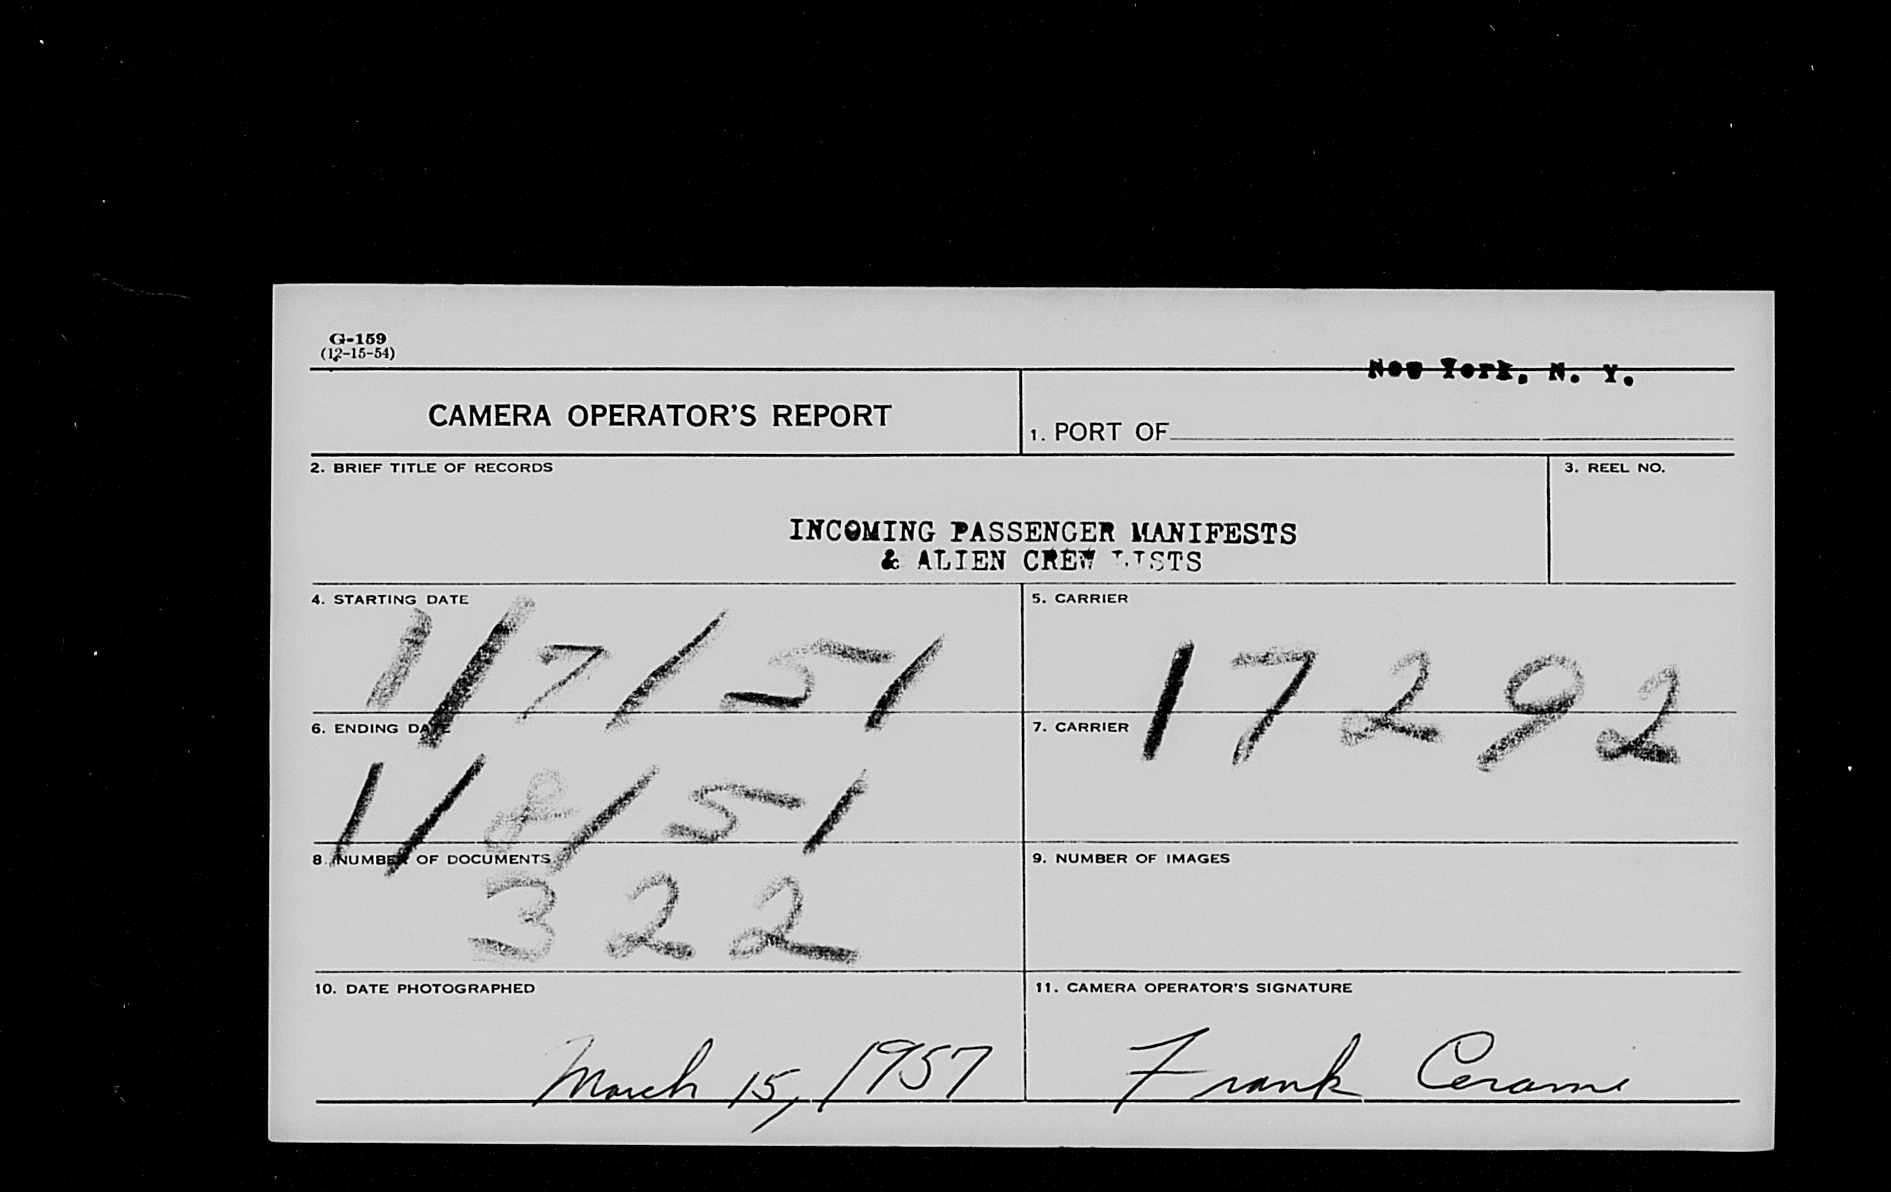 G-159
(12-15-54)
New York, N. Y.
CAMERA OPERATOR'S REPORT
1. PORT OF
2. BRIEF TITLE OF RECORDS
3. REEL NO.
INCOMING PASSENGER MANIFESTS
& ALIEN CREW LISTS
4. STARTING DATE
1/7/51
5. CARRIER
17292
6. ENDING DATE
1/8/51
7. CARRIER
8. NUMBER OF DOCUMENTS
322
9. NUMBER OF IMAGES
10. DATE PHOTOGRAPHED
March 15, 1957
11. CAMERA OPERATOR'S SIGNATURE
Frank Cerami